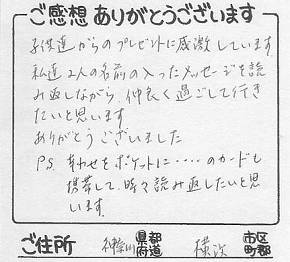 ご感想ありがとうございます
子供達からのプレゼントに感激しています
私達2人の名前の入ったメッセージを読
み返しながら、仲良く過ごして行き
たいと思います
ありがとうございました
P.S. 幸わせをポケットに・・・・・のカードも
携帯して、時々読み返したいと思
います。
ご住所 神奈川 県都府道 横浜 市区町郡